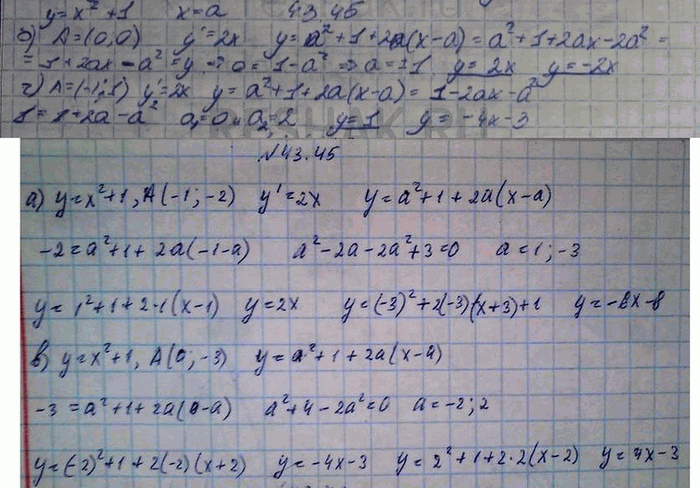 y=x²+1 x=a 43.45
б) A=(0,0) y'=2x y=a²+1+2a(x-a)=a²+1+2ax-2a²=
=1+2ax-a²=y → 0=1-a² ⇒ a=±1 y=2x y=-2x
г) A=(-1;1) y'=2x y=a²+1+2a(x-a)=1-2ax-a²
a₁=0 и a₂=2 y=1 y=-4x-3
N43.45
а) y=x²+1, A(-1;-2) y'=2x y=a²+1+2a(x-a)
-2=a²+1+2a(-1-a) a²-2a-2a²+3=0 a=1;-3
y=1²+1+2·1(x-1) y=2x y=(-3)²+2(-3)(x+3)+1 y=-8x-8
в) y=x²+1, A(0;-3) y=a²+1+2a(x-a)
-3=a²+1+2a(0-a) a²+4-2a²=0 a=-2;2
y=(-2)²+1+2(-2)(x+2) y=-4x-3 y=2²+1+2·2(x-2) y=4x-3